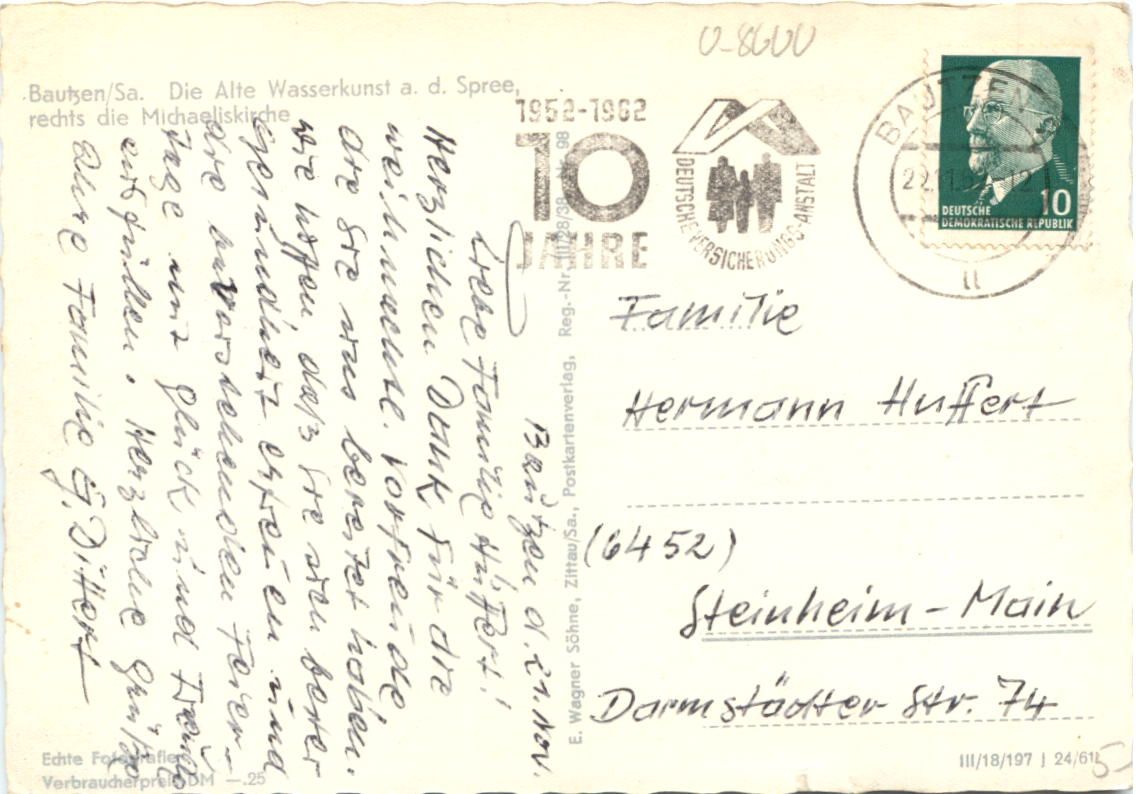 U-8600
Bautzen/Sa. Die Alte Wasserkunst a. d. Spree,
rechts die Michaeliskirche
1952-1962
10
JAHRE
DEUTSCHE VERSICHERUNGS-ANSTALT
BAUTZEN
11
10
DEUTSCHE
DEMOKRATISCHE REPUBLIK
Bautzen d. 21. Nov.
Liebe Familie Huffert!
Herzlichen Dank für die
weihnachtl. Vorfreude
die Sie uns bereitet haben.
Wir hoffen, daß Sie sich bester
Gesundheit erfreuen und
die bevorstehenden Feier-
tage mit Glück und Freude
ausfüllen. Herzliche Grüße
Ihre Familie G. Dittert
E. Wagner Söhne, Zittau/Sa., Postkartenverlag, Reg.-Nr. III/28/38 Nr. 98
Familie
Hermann Huffert
(6452)
Steinheim-Main
Darmstädter Str. 74
Echte Fotografie
Verbraucherpreis DM —.25
III/18/197 J 24/61
5-